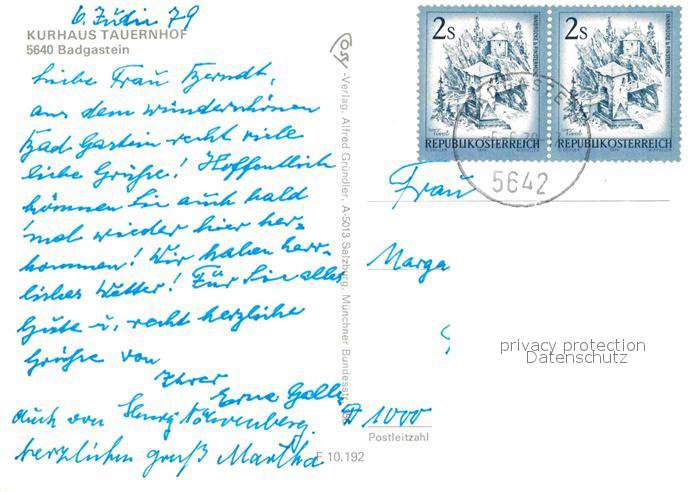 6. Juli 79
KURHAUS TAUERNHOF
5640 Badgastein
Liebe Frau Berndt,
aus dem wunderschönen
Bad Gastein recht viele
liebe Grüße! Hoffentlich
können Sie auch bald
mal wieder hier her=
kommen! Wir haben herr=
liches Wetter! Für Sie alles
Gute u. recht herzliche
Grüße von
Ihrer
Erna
auch von
herzlichen Gruß Martha
-Verlag, Alfred Gründler, A-5013 Salzburg, Münchner Bundesstr.
F 10.192
2s
INNBRÜCKE B. FINSTERMÜNZ
Tirol
REPUBLIKÖSTERREICH
2s
INNBRÜCKE B. FINSTERMÜNZ
Tirol
REPUBLIKÖSTERREICH
5642
Frau
Marga
privacy protection
Datenschutz
D 1000
Postleitzahl